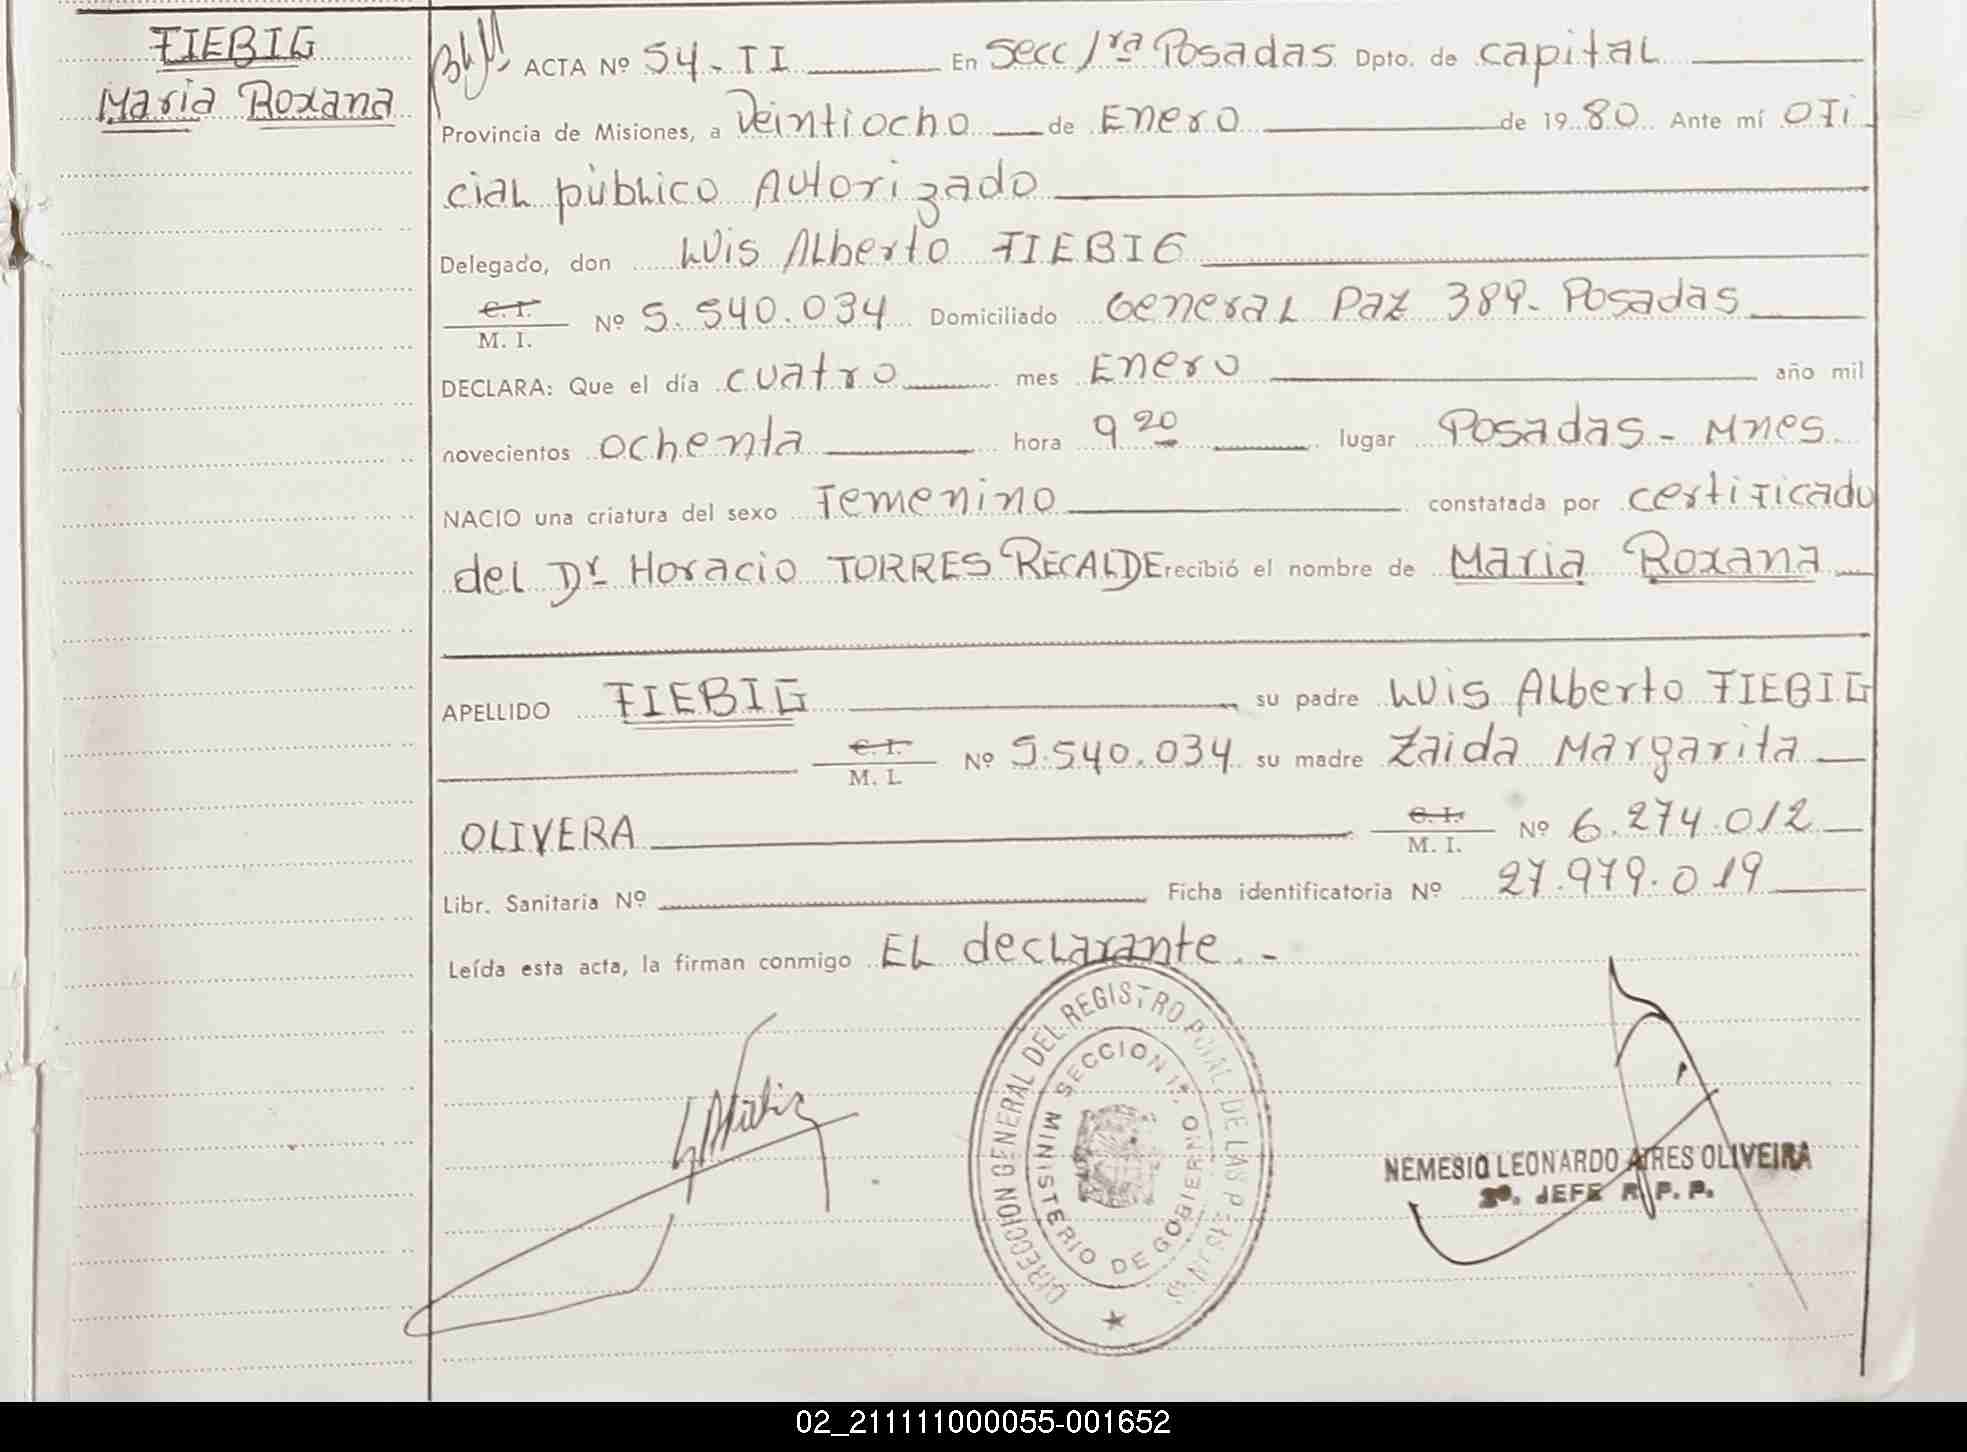 FIEBIG
Maria Roxana
ACTA Nº 54-II En Secc 1ra Posadas Dpto. de capital
Provincia de Misiones, a Veintiocho de Enero de 1980 Ante mí ofi
cial público Autorizado
Delegado, don Luis Alberto FIEBIG
C.I.
M.I. Nº 5.540.034 Domiciliado General Paz 389- Posadas
DECLARA: Que el día cuatro mes Enero año mil
novecientos ochenta hora 9 20 lugar Posadas - Mnes
NACIO una criatura del sexo femenino constatada por certificado
del Dr Horacio TORRES RECALDE recibió el nombre de Maria Roxana
APELLIDO FIEBIG su padre Luis Alberto FIEBIG
C.I.
M.I. Nº 5.540.034 su madre Zaida Margarita
OLIVERA C.I.
M.I. Nº 6.274.012
Libr. Sanitaria Nº Ficha identificatoria Nº 27.979.019
Leída esta acta, la firman conmigo EL declarante.-
DIRECCION GENERAL DEL REGISTRO DE LAS
SECCION 1ª
MINISTERIO DE GOBIERNO
NEMESIO LEONARDO AIRES OLIVEIRA
2º. JEFE R.P.P.
02_211111000055-001652